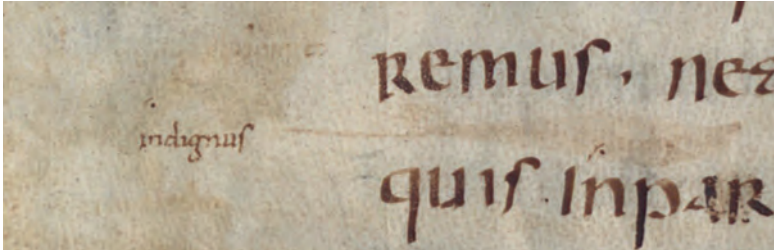 remus, nec
indignus
quis. Inpar